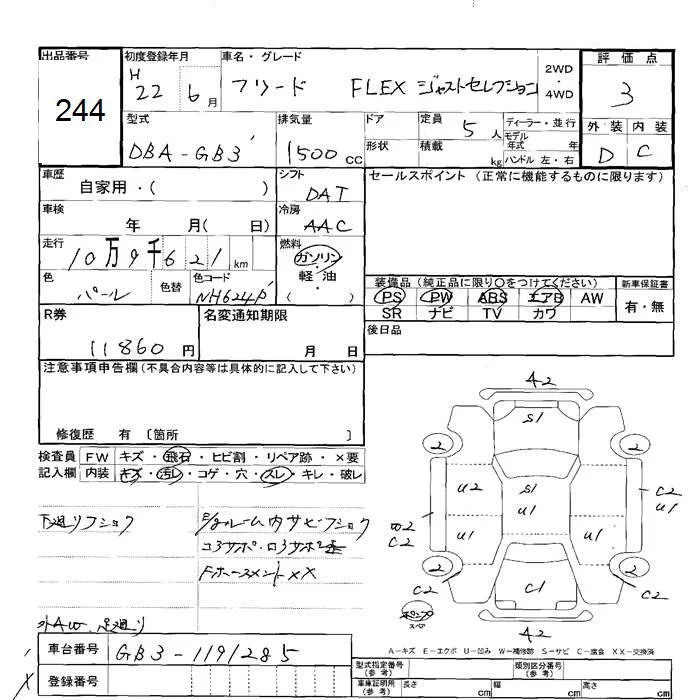 出品番号
244
初度登録年月
H
22 6月
車名・グレード
フリード FLEX ジャストセレクション
2WD
・
4WD
評価点
3
外装 内装
D C
型式
DBA-GB3
排気量
1500cc
ドア
定員
5人
ディーラー・並行
モデル
年式 年
形状
積載
kg
ハンドル 左・右
車歴
自家用・( )
シフト
DAT
セールスポイント (正常に機能するものに限ります)
車検
年 月( 日)
冷房
AAC
走行
10万9千621km
燃料
ガソリン
・
軽・油
( )
色
パール
色替
色コード
NH624P
装備品 (純正品に限り○をつけてください)
PS PW ABS エアB AW
SR ナビ TV カワ
新車保証書
有・無
R券
11860円
名変通知期限
月 日
後日品
注意事項申告欄 (不具合内容等は具体的に記入して下さい)
修復歴 有 〔箇所 〕
検査員
記入欄
FW キズ・飛石・ヒビ割・リペア跡・×要
内装 キズ・汚れ・コゲ・穴・スレ・キレ・破レ
下廻リフショク
ルーム内サビフショク
コアサポ・ロアサポ
Fホースメント××
外AW、足廻り
A2
S1
2 2
U2 S1 U1
U1 U1
W2
C2
C2
U1
2 2
C1
C2 C2
ポンプ
スペア
A2
A-キズ E-エクボ U-凹み W-補修跡 S-サビ C-腐食 XX-交換済
車台番号
GB3-1191285
登録番号
型式指定番号
(参考)
類別区分番号
(参考)
車庫証明用
(参考)
長さ cm
幅 cm
高さ cm